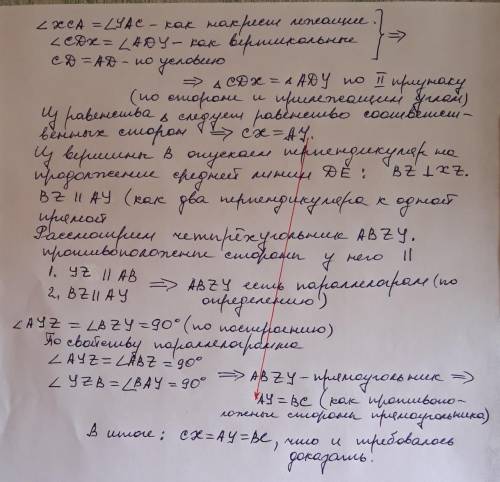 ∠XCA = ∠YAC - как накрест лежащие.
∠CDX = ∠ADY - как вертикальные } ⇒
CD = AD - по условию
⇒ △CDX = △ADY по II признаку
(по стороне и прилежащим углам)
Из равенства △ следует равенство соответст-
венных сторон ⇒ CX = AY.
Из вершины B опускаем перпендикуляр на
продолжение средней линии DE: BZ ⊥ XZ.
BZ || AY (как два перпендикуляра к одной
прямой
Рассмотрим четырёхугольник ABZY.
противоположные стороны у него ||
1. YZ || AB
2. BZ || AY ⇒ ABZY есть параллелограм (по
определению)
∠AYZ = ∠BZY = 90° (по построению)
По свойству параллелограмма
∠AYZ = ∠ABZ = 90°
∠YZB = ∠BAY = 90° ⇒ ABZY - прямоугольник ⇒
AY = BC (как противопо-
ложные стороны прямоугольника)
В итоге: CX = AY = BC, что и требовалось
доказать.